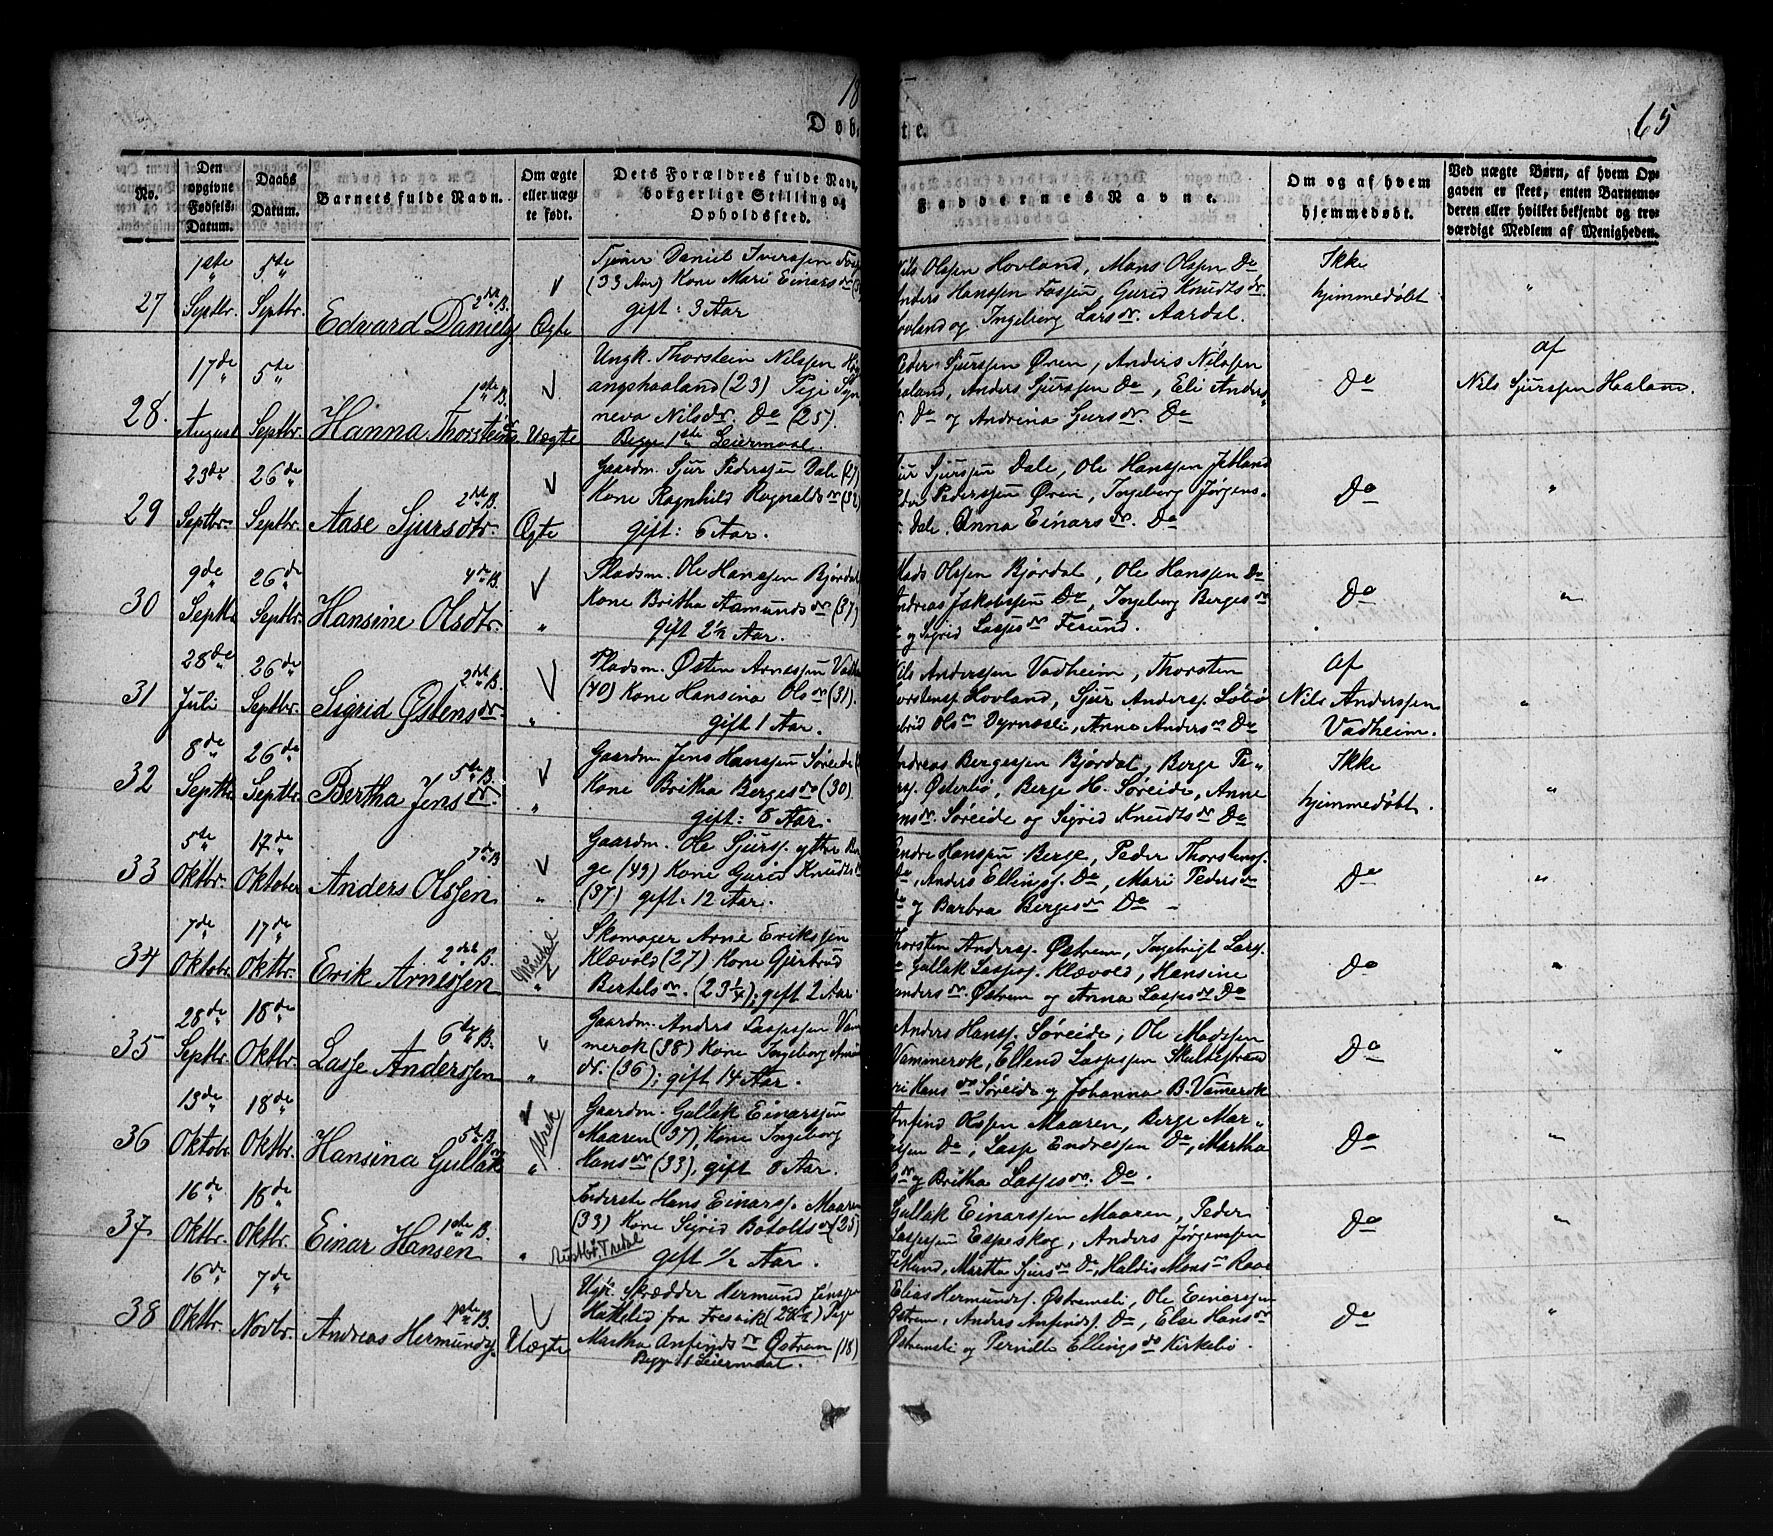 18
65
Døb
te.
No.
Den opgivne Fødsels-Datum.
Daabs Datum.
Barnets fulde Navn.
Om ægte eller uægte født.
Dets Forældres fulde Navn, borgerlige Stilling og Opholdssted.
Faddernes Navne.
Om og af hvem hjemmedøbt.
Ved uægte Børn, af hvem Opgaven er skeet, enten Barnemoderen eller hvilket bekjendt og troværdigt Medlem af Menigheden.
27
1ste Septbr.
5te Septbr.
2det B.
Edvard Daniels
Ægte
Tjener Daniel Iverssen
(33 Aar) Kone Mari Einarsdr
gift: 3 Aar
Nils Olssen Hovland, Mons Olssen Do
Anders Hanssen Fossen, Gurid Knudtsdr.
Hovland og Ingeborg Larsdr. Aardal.
Ikke
hjemmedøbt
"
28.
17de August
5te Septbr.
1ste B.
Hanna Thorsteinsdr
Uægte
Ungk. Thorstein Nilssen
angshaaland (23) Pige Syn-
neva Nilsdr. Do (25).
Begge 1ste Leiermaal.
Peder Sjurssen Øren, Anders Nilssen
Haaland, Anders Sjurssen Do, Eli Anders"
dr. Do og Andrina Gursdr. Do
Do
af
Nils Sjurssen Haaland.
29
23de Septbr.
26de Septbr.
2det B.
Aase Sjursdtr.
Ægte
Gaardm. Sjur Pederssen Dale (27)
Kone Ragnhild Rognaldsdr (32)
gift: 6 Aar.
Sjur Sjurssen Dale, Ole Hanssen Jetland
Peder Pederssen Øren, Ingeborg Jørgens-
dr. Dale. Anna Einarsdr. Do
Do
"
30
9de Septbr
26de Septbr.
4de B.
Hansine Olsdtr.
"
Pladsm. Ole Hanssen Bjørdal
Kone Britha Aamundsdr (37)
gift 2½ Aar.
Mads Olssen Bjørdal, Ole Hanssen Do
Andreas Jakobssen Do, Ingeborg Bergesdr
Do og Sigrid Lassesdr Fesund.
Do
"
31
28de Juli
26de Septbr.
2det B.
Sigrid Østensdr
"
Pladsm. Østen Arnessen Vadh
(40) Kone Hansina Olsdr (31).
gift 1 Aar.
Nils Anderssen Vadheim, Thorsten
Thorstenss Hovland, Sjur Anderss. Løbø
Olsdr Dyrnæsli, Anne Andersdr Do
Af
Nils Anderssen
Vadheim.
"
32
8de Septbr
26de Septbr.
5te B.
Bertha Jensdr.
"
Gaardm. Jens Hanssen Søreide
Kone Britha Bergesdr (30)
gift: 8 Aar.
Andreas Bergessen Bjørdal, Berge Pe"
ss. Østerbø, Berge H. Søreide, Anne
Jensdr. Søreide og Sigrid Knudtsdr Do
Ikke
hjemmedøbt.
"
33
5te Oktbr.
17de Oktober
7de B
Anders Olssen
"
Gaardm. Ole Sjurss. yttre Ber-
ge (49) Kone Gurid Knudtsdr
(37) gift. 12 Aar.
Endre Hanssen Berge, Peder Thorstenss.
Do, Anders Ellingss. Do, Mari Pedersdr
Do og Barbra Bergesdr Do
Do
"
34
7de Oktobr.
17de Oktbr.
2det B.
Erik Arnessen
"
Skomager Arne Erikssen
Klævold (27) Kone Gjertrud
Bertelsdr. (23¼); gift 2 Aar.
Thorsten Anderss. Østrem, Ingebrigt Larss.
Do Gullak Lassess. Klævold, Hansine
Andersdr. Østrem og Anna Lassesdr Do
Do
"
35
28de Septbr.
18de Oktbr.
6te B.
Lasse Anderssen
"
Gaardm. Anders Lassessen Vam-
merok (38) Kone Ingeborg
dr. (36); gift 14 Aar.
Anders Hanss. Søreide, Ole Madssen
Vammerok, Ellend Lassessen Skultestrand
Hansdr Søreide og Johanna B. Vamerok
Do
"
36
13de Oktobr.
18de Oktbr.
5te B.
Hansina Gullaksdr
"
Gaardm. Gullak Einarssen
Maaren (37), Kone Ingeborg
Hansdr (33), gift 8 Aar.
Anfind Olssen Maaren, Berge Mar"
Do, Lasse Endressen Do, Martha
dr og Britha Lassesdr. Do.
Do
"
37
16de Oktbr.
18de Oktbr.
1ste B.
Einar Hansen
"
Inderste Hans Einarss. Maaren
(33) Kone Sigrid Botoltsdr (25)
gift ½ Aar.
Gullak Einarssen Maaren, Peder
Lassessen Espeskog, Anders Jørgenssen
Jetland, Martha Sjursdr Do, Haldis Monsdr
Do
"
38
16de Oktbr.
7de Novbr.
1ste B.
Andreas Hermunds.
Uægte
Ugk. Skrædder Hermund Jenssen
Hattelid fra Fresvik (28½) Pige
Martha Anfindsdr Østrem (18)
Begge 1 Leiermaal.
Elias Hermundss. Østremsli, Ole Einarssen
Østrem, Anders Anfindss. Do, Else Hansdr
Østremsli og Pernille Ellingsdr Kirkebø.
Do
"